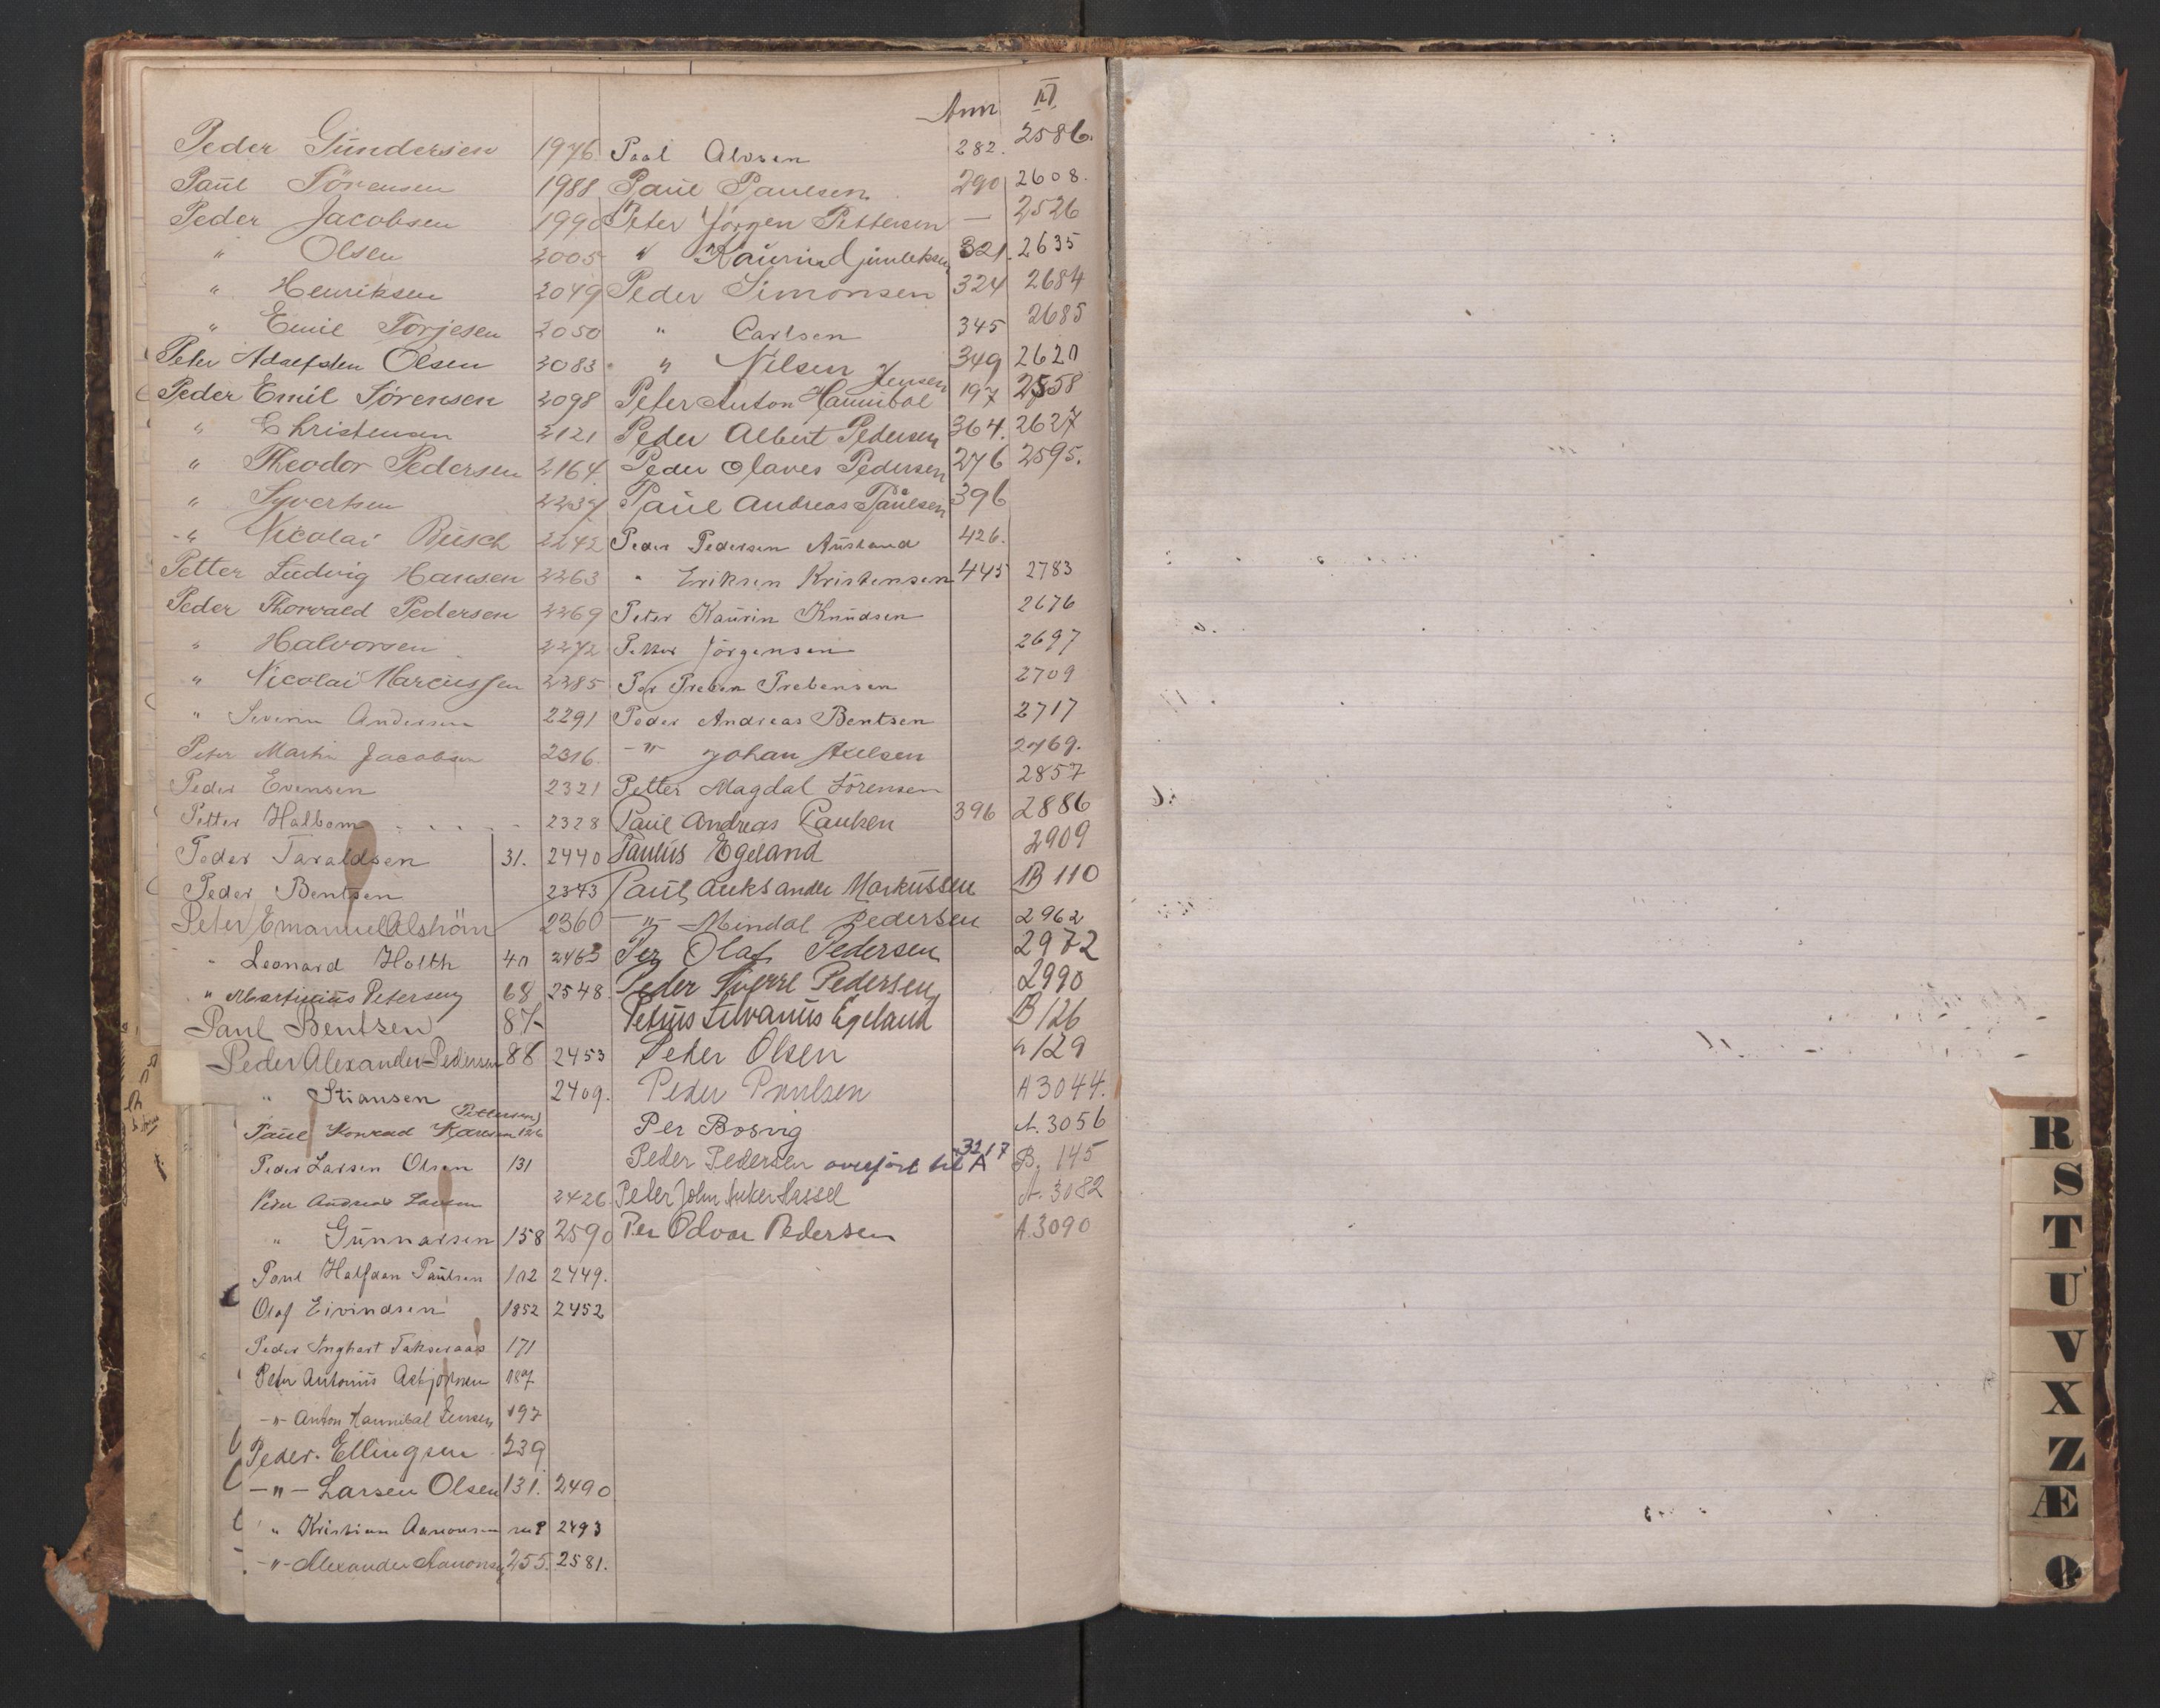 Ann III
Peder Gundersen 1976 Paal Alvsen 282. 2586.
Paul Sörensen 1988 Paul Paulsen 290 2608.
Peder Jacobsen 1990 Peter Jörgen Pettersen — 2526
" Olsen 2005 " Kaurin 321. 2635
" Henriksen 2049 Peder Simonsen 324 2684
" Emil Torjesen 2050 " Carlsen 345 2685
Peter Olsen 2083 " Nilsen 349 2620
Peder Emil Sörensen 2098 Peter Anton Hannibal Jensen 197 2558
" Christensen 2121 Peder Albert Pedersen 364. 2627
" Theodor Pedersen 2164. Peder Olaves Pedersen 276 2595.
" Syvertsen 2237 Paul Andreas Paulsen 396
" Nicolai Busch 2242 Peder Pedersen Ausland 426.
Petter Ludvig Hansen 2263 " Eriksen Kristensen 445 2783
Peder Thorvald Pedersen 2269 Peter Kaurin Knudsen 2676
" Halvorsen 2272 Petter Jörgensen 2697
" Nicolai Marcussen 2285 Per Preben Prebensen 2709
" Severin Andersen 2291 Peder Andreas Bentsen 2717
Peter Martin Jacobsen 2316. -"- Johan Axelsen 2769.
Peder Evensen 2321 Petter Magdal Sörensen 2857
Petter Halbom 2328 Paul Andreas Paulsen 396 2886
Peder Taraldsen 31. 2440 Paulus Egeland 2909
Peder Bentsen 2343 Paul Aleksander Markussen B 110
Peter Emanuel Alshöm 2360 -"- Mindal Pedersen 2962
" Leonard Holth 40 2463 Per Olaf Pedersen 2972
" Martinius Petersen 68 2548. Peder Sverre Pedersen 2990
Paul Bentsen 87 Petrus Silvanus Egeland B 126
Peder Alexander Pedersen 88 2453 Peter Olsen " 129
" Stiansen 2409. Peder Paulsen A 3044.
Paul Konrad Karlsen (Pettersen) 126 Per Bosvig A. 3056
Peder Larsen Olsen 131 Peder Pedersen overfört til A 3217 B. 145
Peder Andreas Larsen 2426. Peter John Anker Hassel A. 3082
" Gunnarsen 158 2590 Per Odvar Pedersen A. 3090
Paul Halfdan Paulsen 102 2449.
Olaf Eivindsen 1852 2452
Peder Inghart Takseraas 171
Peter Antonius Asbjörnsen 187
-"- Anton Hannibal Jensen 197
Peder Ellingsen 239
-"- Larsen Olsen 131. 2490
" Kristian Aanonsen 2493
-"- Alexander Aanonsen 255. 2581.
R
S
T
U
V
X
Z
Æ
Ø